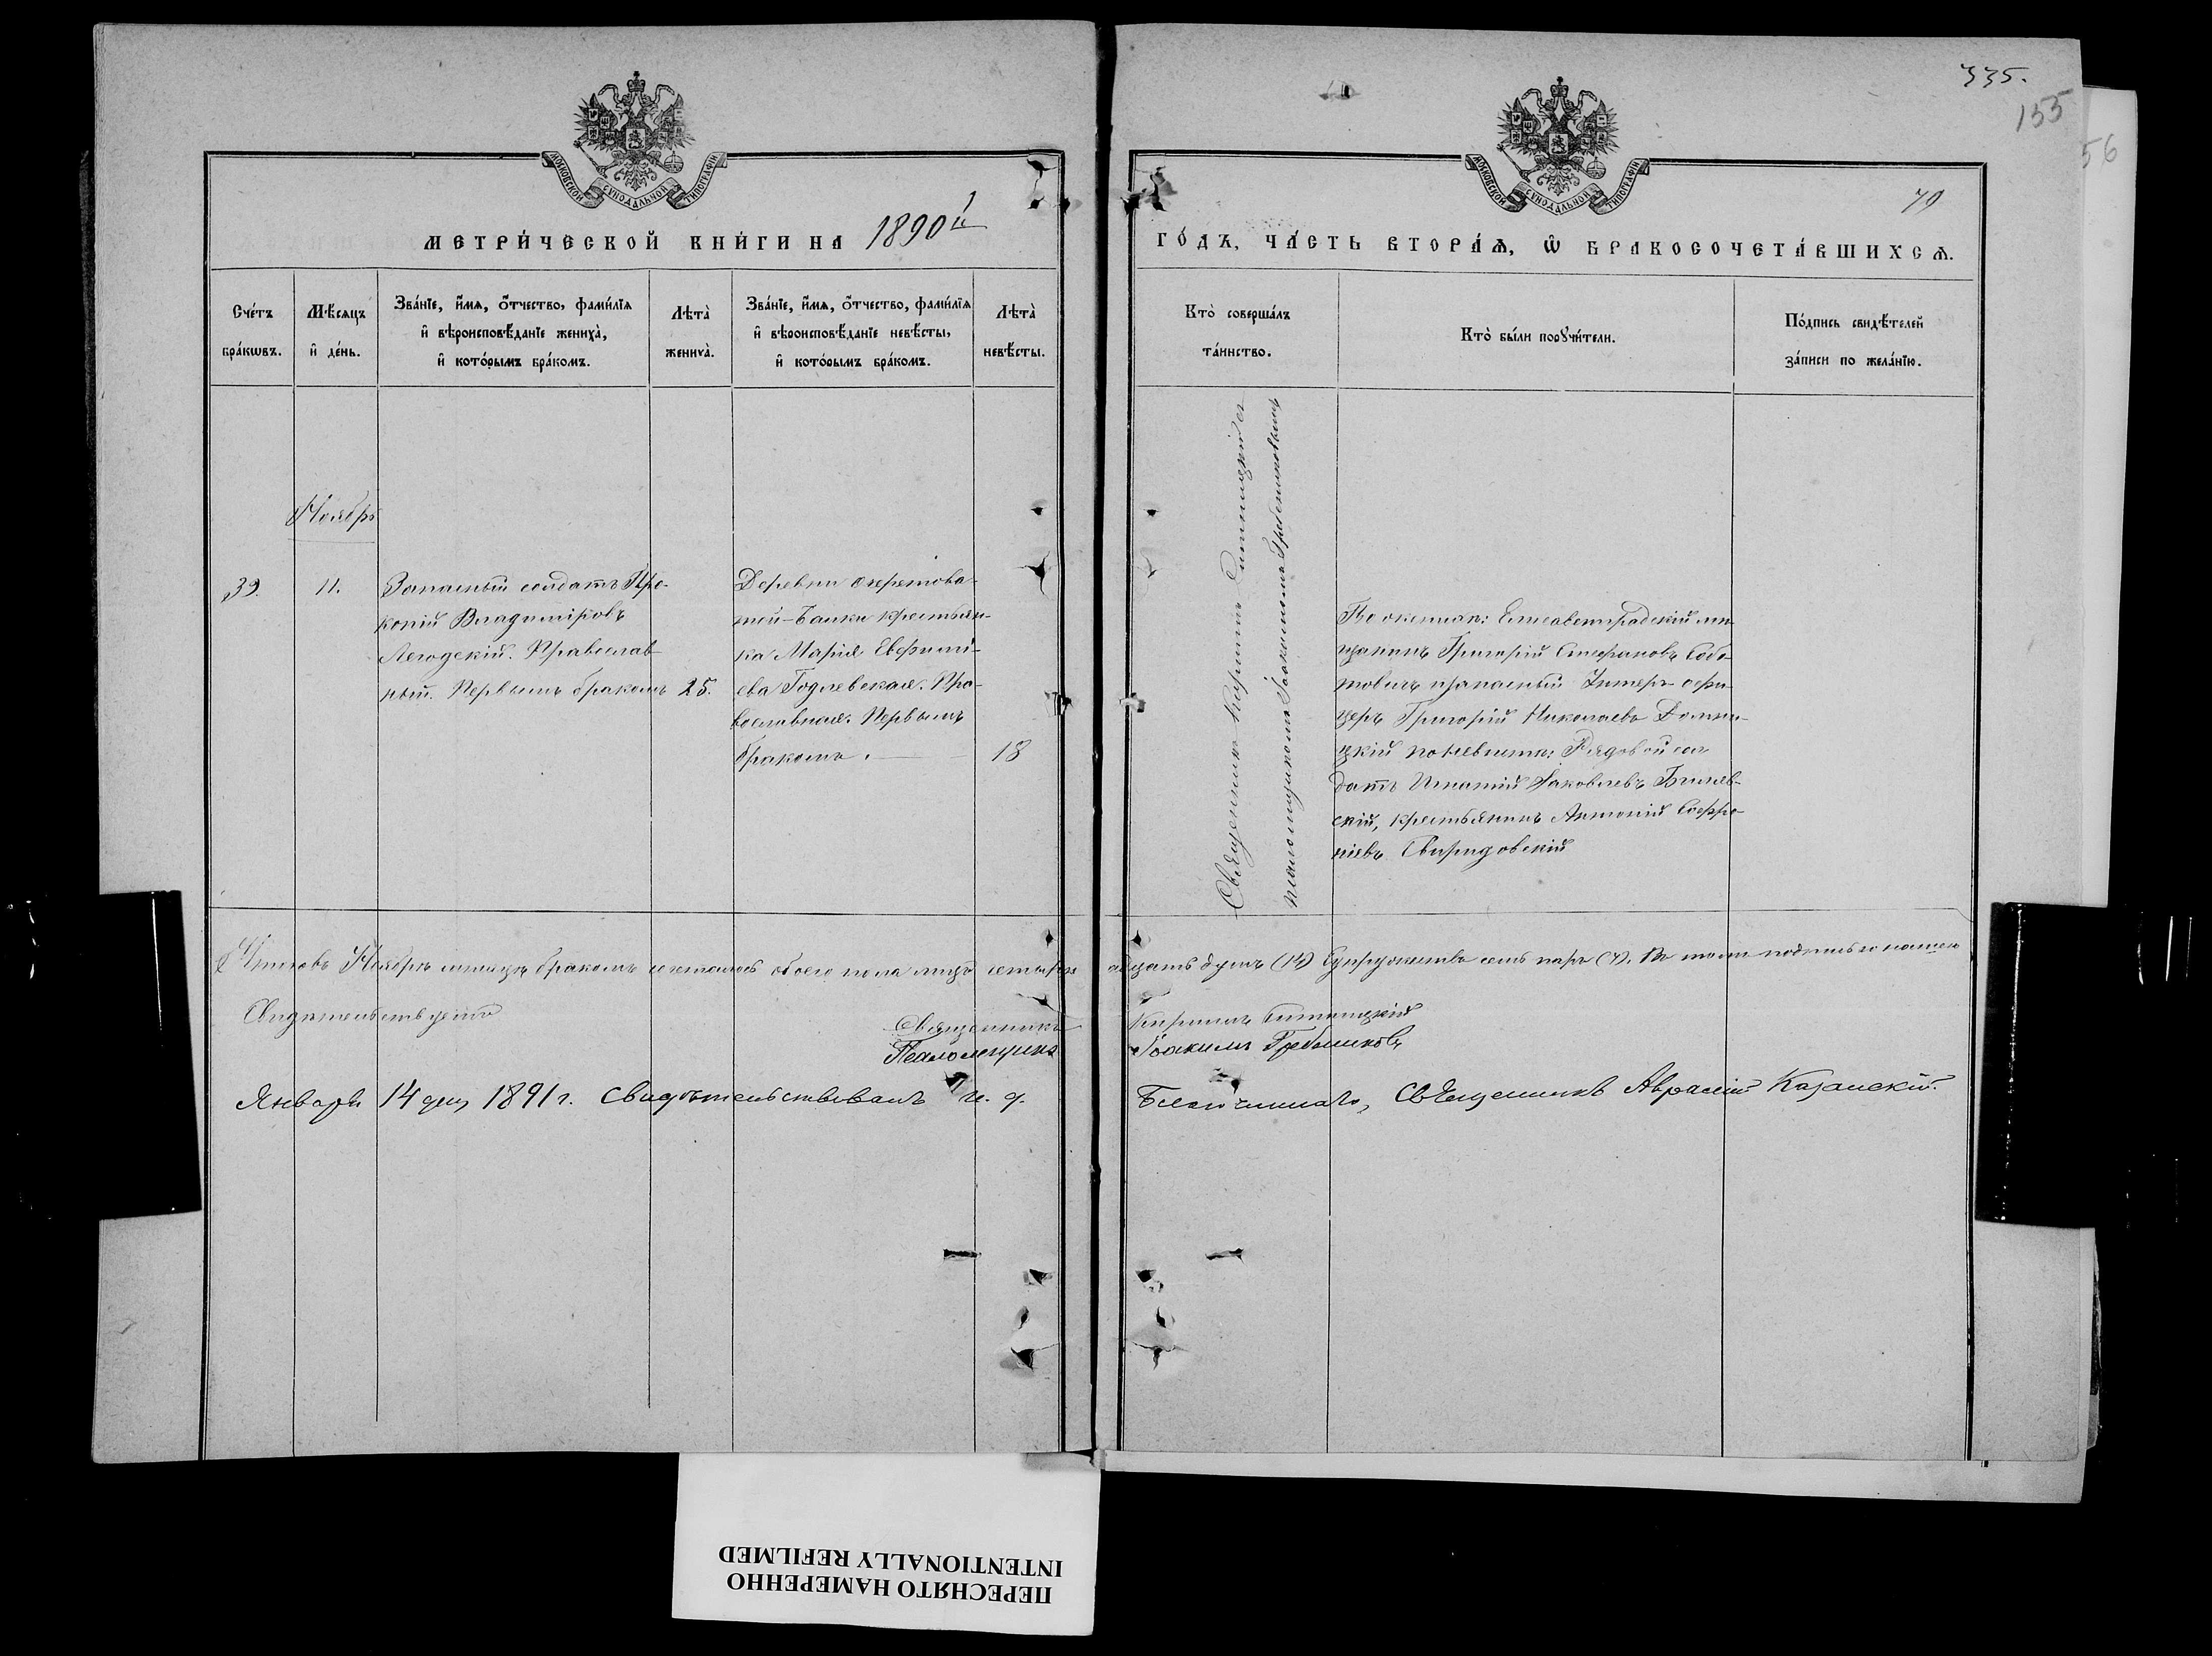 335.
155
56
70
МОСКОВСКОЙ СѴНОДАЛЬНОЙ ТИПОГРАФІИ
МОСКОВСКОЙ СѴНОДАЛЬНОЙ ТИПОГРАФІИ
МЕТРИ́ЧЕСКОЙ КНИ́ГИ НА 1890й
ГО́ДЪ, ЧА́СТЬ ВТОРА́Ѧ, Ѽ БРАКОСОЧЕТА́ВШИХСѦ.
Сче́тъ бра́кѡвъ.
Мѣ́сяцъ и҆ де́нь.
Зва́нїе, и҆́мѧ, ѻ҆́тчество, фамі́лїѧ
и҆ вѣроисповѣ́данїе жениха̀,
и҆ кото́рымъ бра́комъ.
Лѣта̀ жениха̀.
Зва́нїе, и҆́мѧ, ѻ҆́тчество, фамі́лїѧ
и҆ вѣроисповѣ́данїе невѣ́сты,
и҆ кото́рымъ бра́комъ.
Лѣта̀ невѣ́сты.
Кто̀ соверша́лъ та́инство.
Кто̀ бы́ли порꙋчи́тели.
По́дпись свидѣ́телей за́писи по жела́нїю.
Ноябрь
39.
11.
Запасный солдатъ Про-
копій Владиміровъ
Легодскій. Православ-
ный. Первымъ бракомъ
25.
Деревни Очеретова-
той-Балки крестьян-
ка Марія Евфимі-
ева Годлевская. Пра-
вославная. Первымъ
бракомъ.
18
Священникъ Кириллъ Ситницкій съ
псаломщикомъ Іоакимомъ Гребенниковымъ
По женихѣ: Елисаветградскій мѣ-
щанинъ Григорій Стефановъ Собо-
товичъ и запасный Унтеръ-офи-
церъ Григорій Николаевъ
по невѣстѣ: Рядовой сол
датъ Игнатій Іаковлевъ
скій, крестьянинъ Антоній Софро-
ніевъ Свиридовскій
Итого въ Ноябрѣ мѣсяцѣ бракомъ сочеталось обоего пола лицъ четыр
надцать душъ (14) Супружествъ семь паръ (7). Въ томъ подписью нашею
Свидѣтельствуемъ
Священникъ Кириллъ Ситницкій
Псаломщикъ Іоакимъ Гребенниковъ
Января 14 дня 1891 г. Свидѣтельствовалъ и. д. Благочиннаго, Священникъ Аврамій Казанскій.
ПЕРЕСНЯТО НАМЕРЕННО
INTENTIONALLY REFILMED